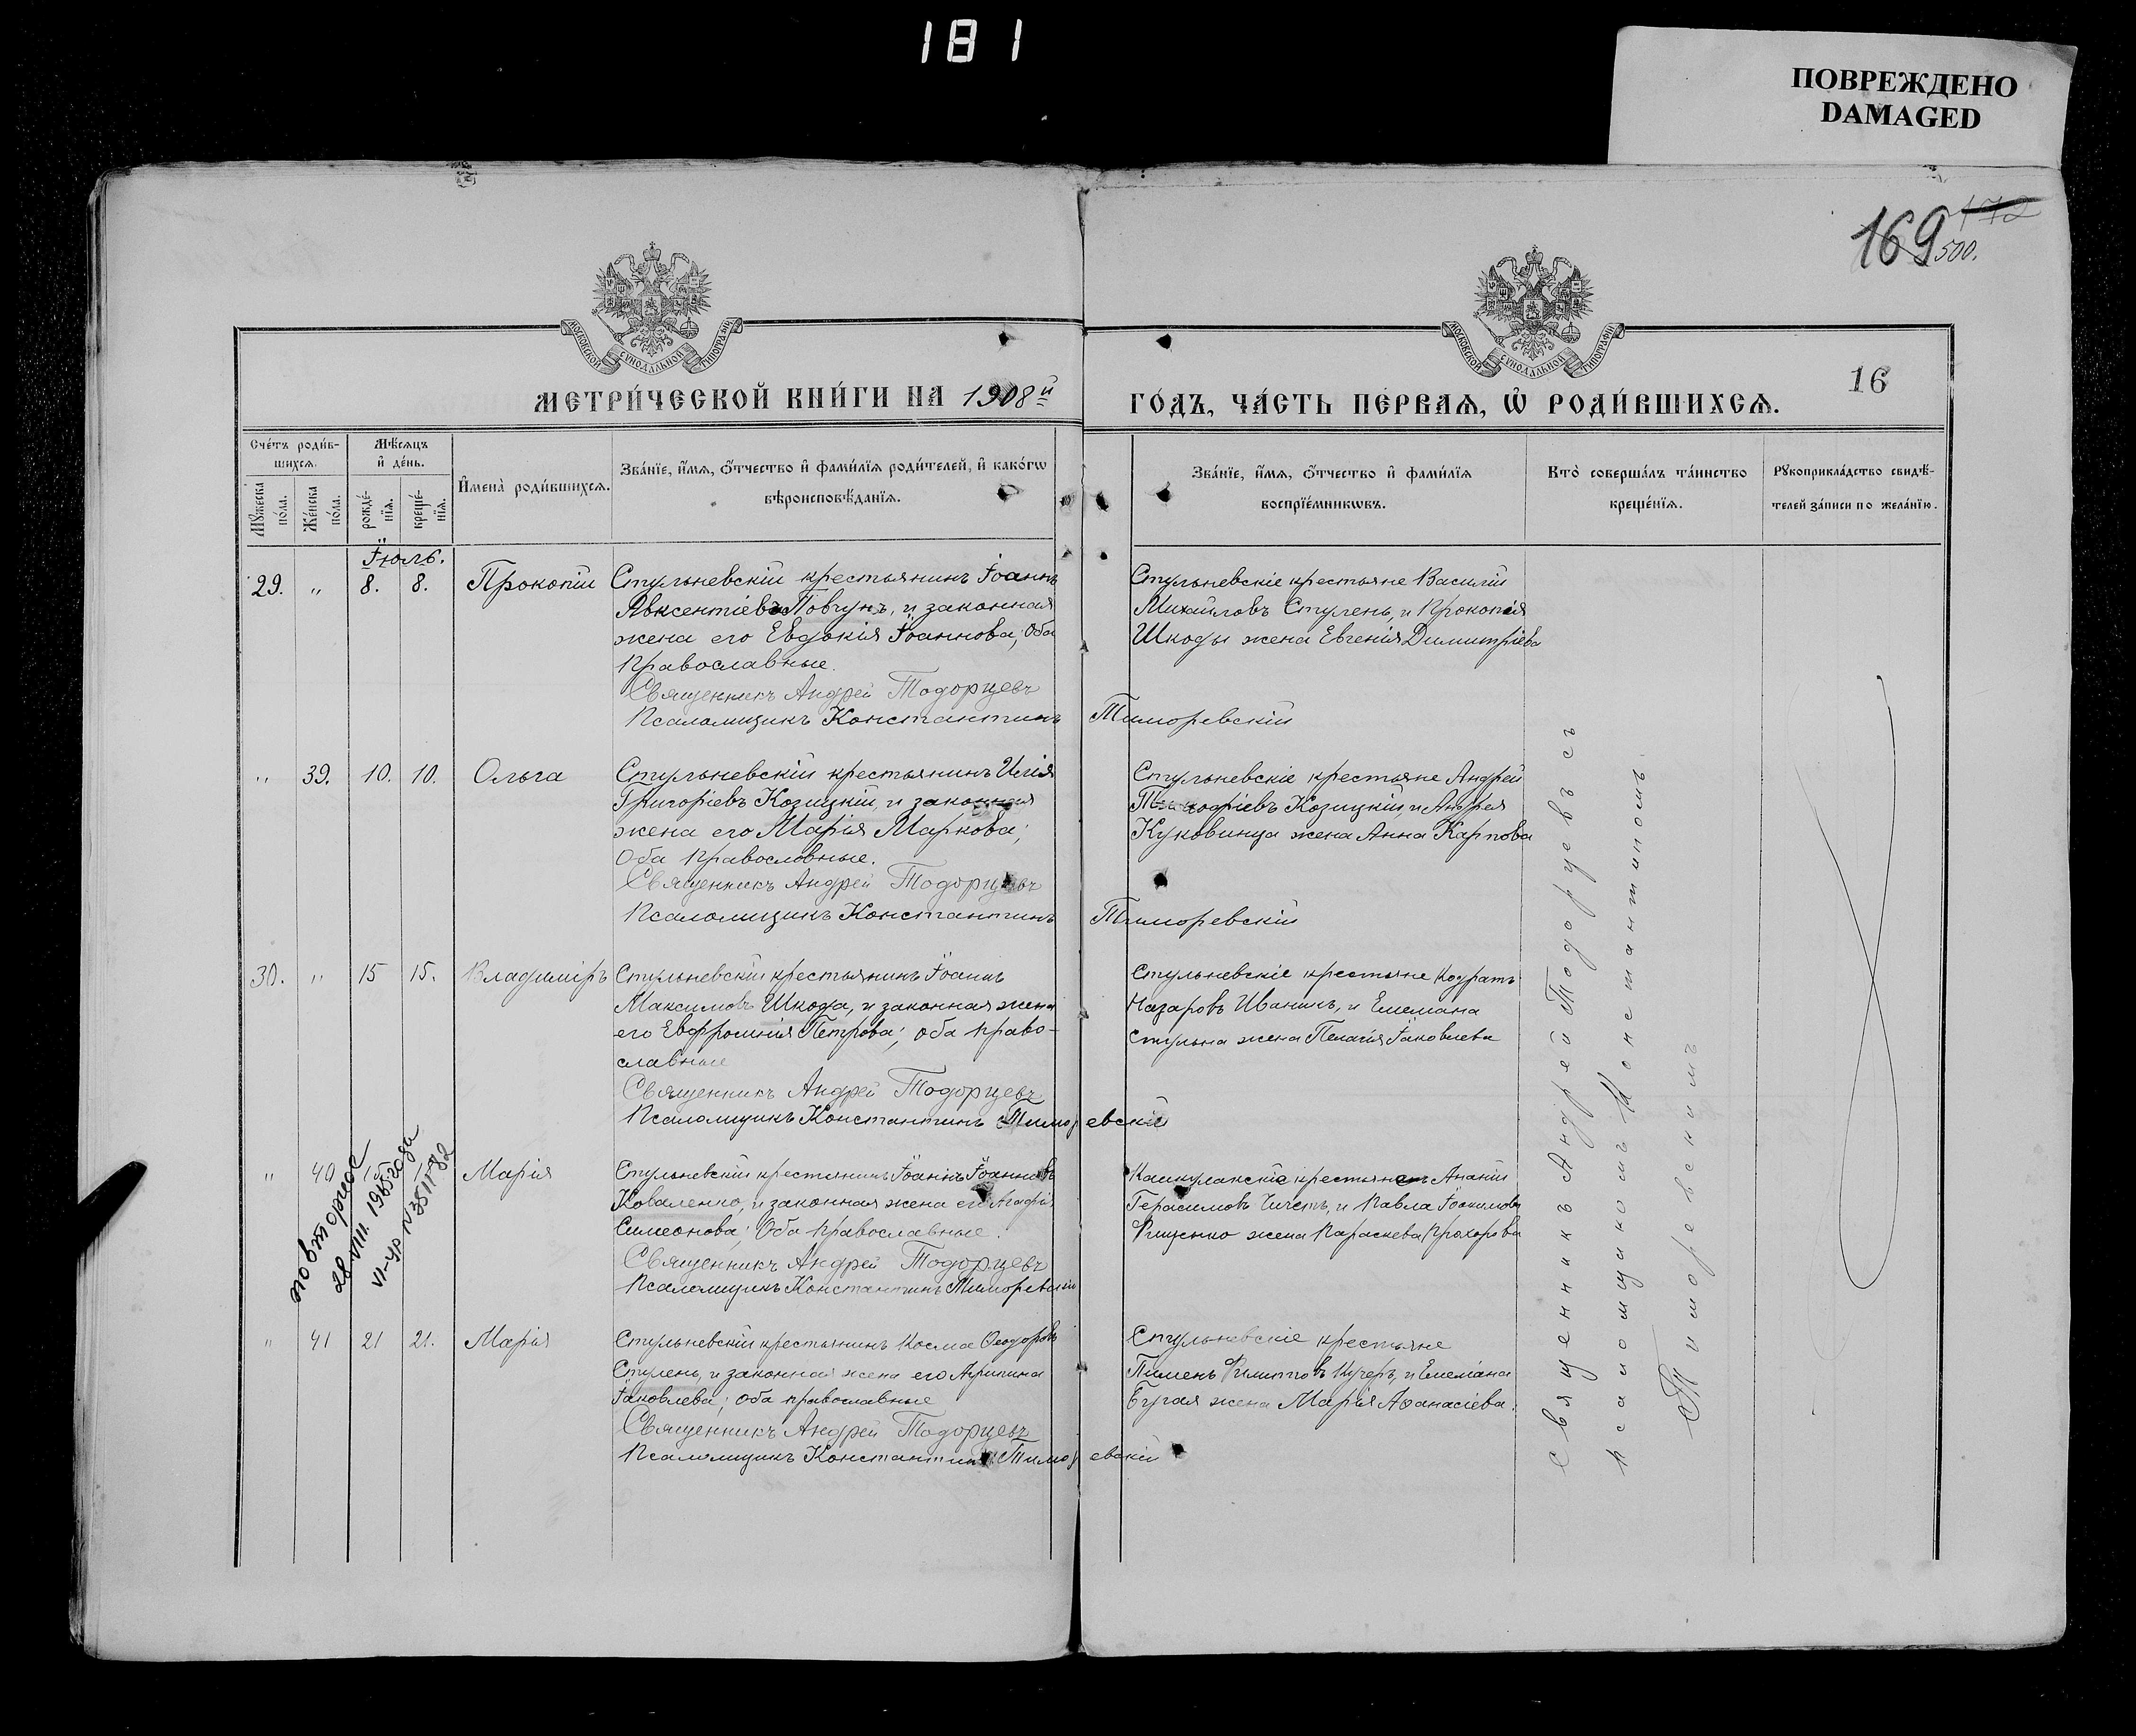 181
ПОВРЕЖДЕНО
DAMAGED
172
169
500.
МОСКОВСКОЙ СѴНОДАЛЬНОЙ ТИПОГРАФІИ
МОСКОВСКОЙ СѴНОДАЛЬНОЙ ТИПОГРАФІИ
16
МЕТРИ́ЧЕСКОЙ КНИ́ГИ НА 1908й
ГО́ДЪ, ЧА́СТЬ ПЕ́РВАѦ, Ѡ҆ РОДИ́ВШИХСѦ.
Сче́тъ роди́в-
шихсѧ.
Мꙋ́жеска по́ла.
Же́нска по́ла.
Мѣ́сѧцъ
и҆ де́нь.
рожде́-
нїѧ.
креще́-
нїѧ.
И҆мена̀ роди́вшихсѧ.
Зва́нїе, и҆́мѧ, ѻ҆́тчество и҆ фами́лїѧ роди́телей, и҆ како́гѡ
вѣроисповѣ́данїѧ.
Зва́нїе, и҆́мѧ, ѻ҆́тчество и҆ фами́лїѧ
воспрїе́мникѡвъ.
Кто̀ соверша́лъ та́инство
креще́нїѧ.
Рꙋкоприкла́дство свидѣ́-
телей за́писи по жела́нїю.
Іюль.
29. " 8. 8. Прокопій
Стульневскій крестьянинъ Іоаннъ
Авксентіевъ Повгунъ, и законная
жена его Евдокія Іоаннова; Оба
православные.
Священникъ Андрей Тодорцевъ
Псаломщикъ Константинъ Тиморевскій
Стульневскіе крестьяне Василій
Михайловъ Стулень, и Прокопія
Шкоды жена Евгенія Димитріева
" 39. 10. 10. Ольга
Стульневскій крестьянинъ Илія
Григоріевъ Козицкій, и законная
жена его Марія Маркова;
Оба православные.
Священникъ Андрей Тодорцевъ
Псаломщикъ Константинъ Тиморевскій
Стульневскіе крестьяне Андрей
Козицкій, и Андрея
Куковинца жена Анна Карпова
30. " 15 15. Владиміръ
Стульневскій крестьянинъ Іоаннъ
Максимовъ Шкода, и законная жена
его Евфросинія Петрова; оба право-
славные
Священникъ Андрей Тодорцевъ
Псаломщикъ Константинъ Тиморевскій
Стульневскіе крестьяне Кодратъ
Назаровъ Иванинъ, и Емеліана
Стульна жена Пелагія Іаковлева
" 40 15 15 Марія
Стульневскій крестьянинъ Іоаннъ Іоанновъ
Коваленко, и законная жена его Агафія
Симеонова; Оба православные.
Священникъ Андрей Тодорцевъ
Псаломщикъ Константинъ Тиморевскій
крестьянинъ Ананій
Герасимовъ и Павла Іоакимова
жена Параскева Прохорова
повторное
28 VIII. 1965 года
VI-УР N 351182
" 41 21 21. Марія
Стульневскій крестьянинъ Косма Ѳеодоровъ
Стулень, и законная жена его Агрипина
Іаковлева; оба православные
Священникъ Андрей Тодорцевъ
Псаломщикъ Константинъ Тиморевскій
Стульневскіе крестьяне
Пименъ Филипповъ Кучеръ, и Емеліана
Бугая жена Марія Аѳанасіева.
Священникъ Андрей Тодорцевъ съ
псаломщикомъ Константиномъ
Тиморевскимъ